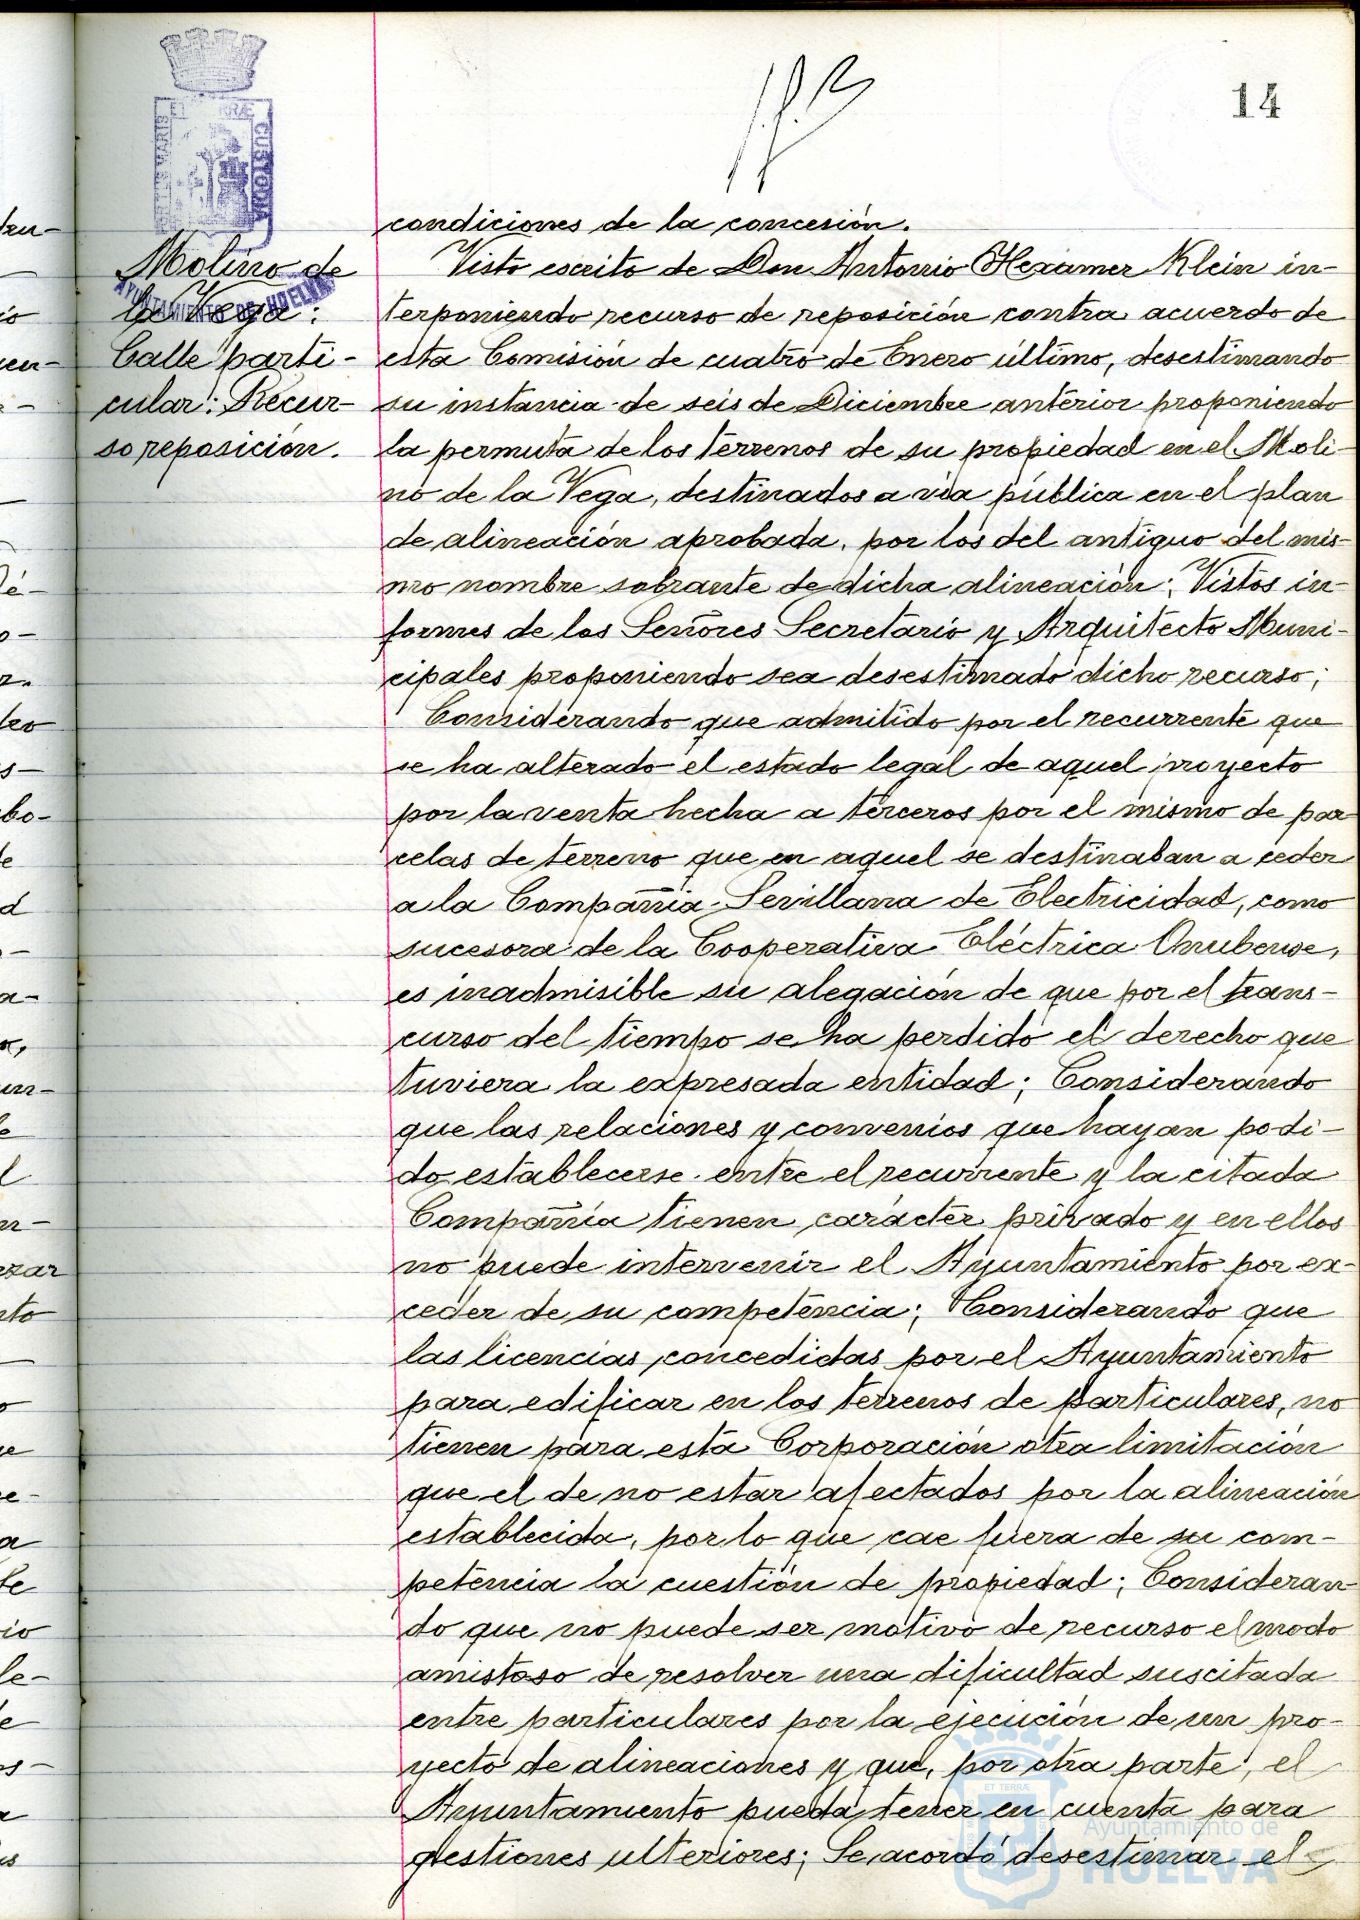 14
PORTUS MARIS ET TERRÆ CUSTODIA
AYUNTAMIENTO DE HUELVA
Molino de
la Vega:
Calle parti-
cular: Recur-
so reposición.
condiciones de la concesión.
Visto escrito de Don Antonio Hexamer Klein in-
terponiendo recurso de reposición contra acuerdo de
esta Comisión de cuatro de Enero último, desestimando
su instancia de seis de Diciembre anterior proponiendo
la permuta de los terrenos de su propiedad en el Moli-
no de la Vega, destinados a vía pública en el plan
de alineación aprobada, por los del antiguo del mis-
mo nombre sobrante de dicha alineación; Vistos in-
formes de los Señores Secretario y Arquitecto Muni-
cipales proponiendo sea desestimado dicho recurso;
Considerando que admitido por el recurrente que
se ha alterado el estado legal de aquel proyecto
por la venta hecha a terceros por el mismo de par-
celas de terreno que en aquel se destinaban a ceder
a la Compañía Sevillana de Electricidad, como
sucesora de la Cooperativa Eléctrica Onubense,
es inadmisible su alegación de que por el trans-
curso del tiempo se ha perdido el derecho que
tuviera la expresada entidad; Considerando
que las relaciones y convenios que hayan podi-
do establecerse entre el recurrente y la citada
Compañía tienen carácter privado y en ellos
no puede intervenir el Ayuntamiento por ex-
ceder de su competencia; Considerando que
las licencias concedidas por el Ayuntamiento
para edificar en los terrenos de particulares, no
tienen para esta Corporación otra limitación
que el de no estar afectados por la alineación
establecida, por lo que cae fuera de su com-
petencia la cuestión de propiedad; Consideran-
do que no puede ser motivo de recurso el modo
amistoso de resolver una dificultad suscitada
entre particulares por la ejecución de un pro-
yecto de alineaciones y que, por otra parte, el
Ayuntamiento pueda tener en cuenta para
gestiones ulteriores; Se acordó desestimar el
Ayuntamiento de
HUELVA